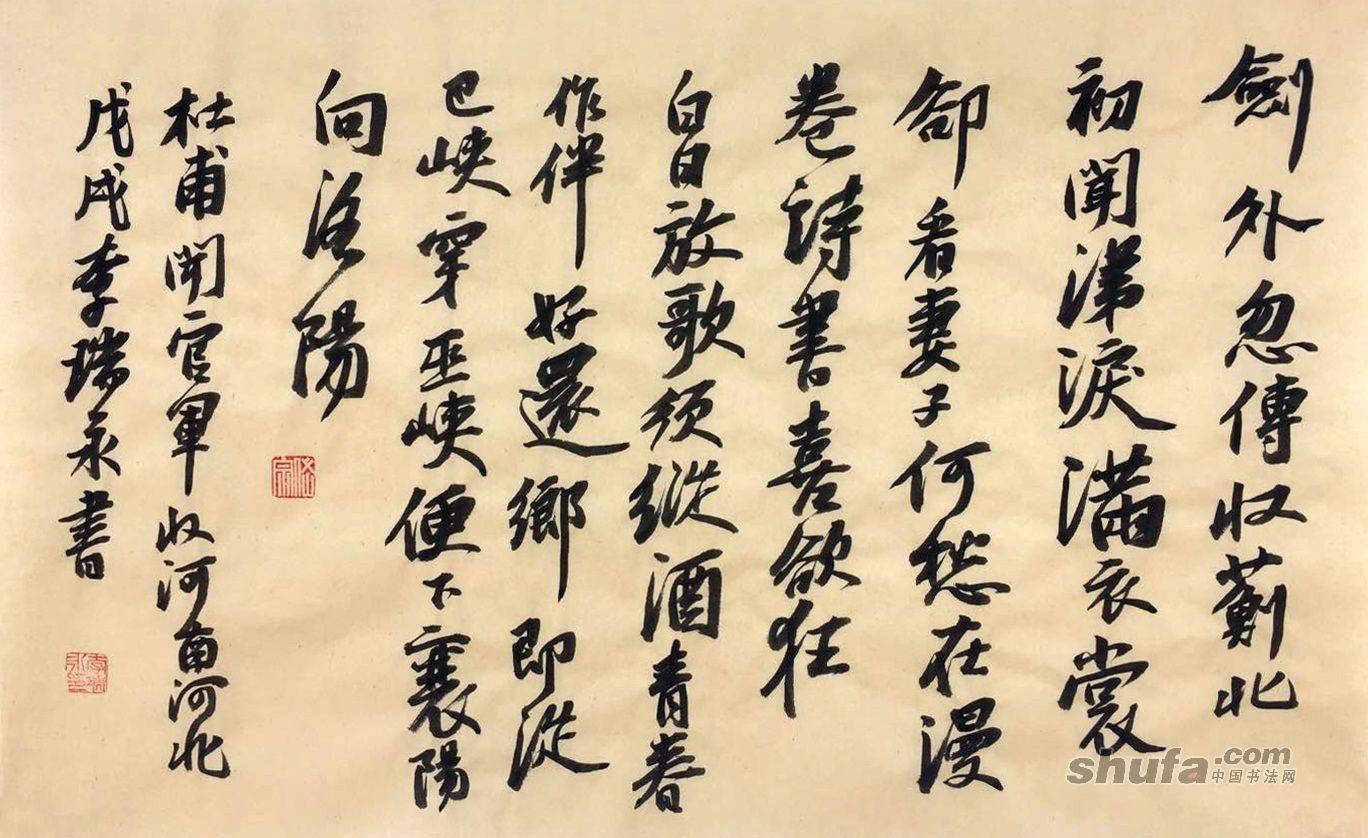 劍外忽傳收薊北
初聞涕淚滿衣裳
卻看妻子何愁在漫
卷詩書喜欲狂
白日放歌須縱酒青春
作伴好還鄉即從
巴峽穿巫峽便下襄陽
向洛陽
杜甫聞官軍收河南河北
戊戌李瑞永書
shufa.com
中国书法网